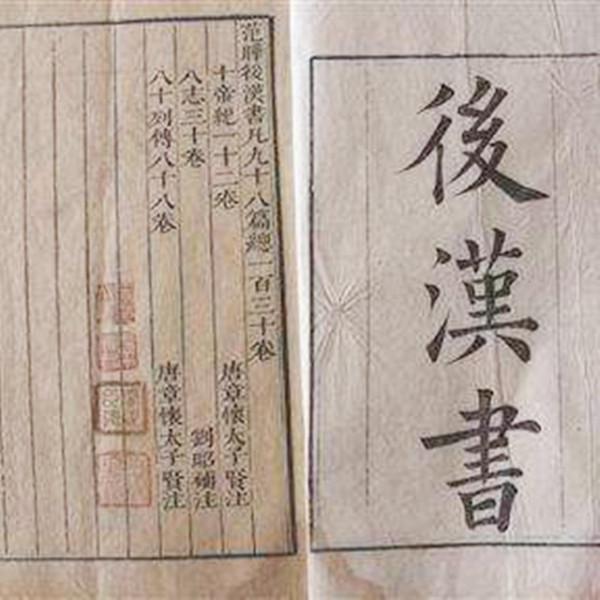 後漢書
范曄後漢書凡九十八篇總一百三十卷
十帝紀一十二卷 唐章懷太子賢注
八志三十卷 劉昭補注
八十列傳八十八卷 唐章懷太子賢注